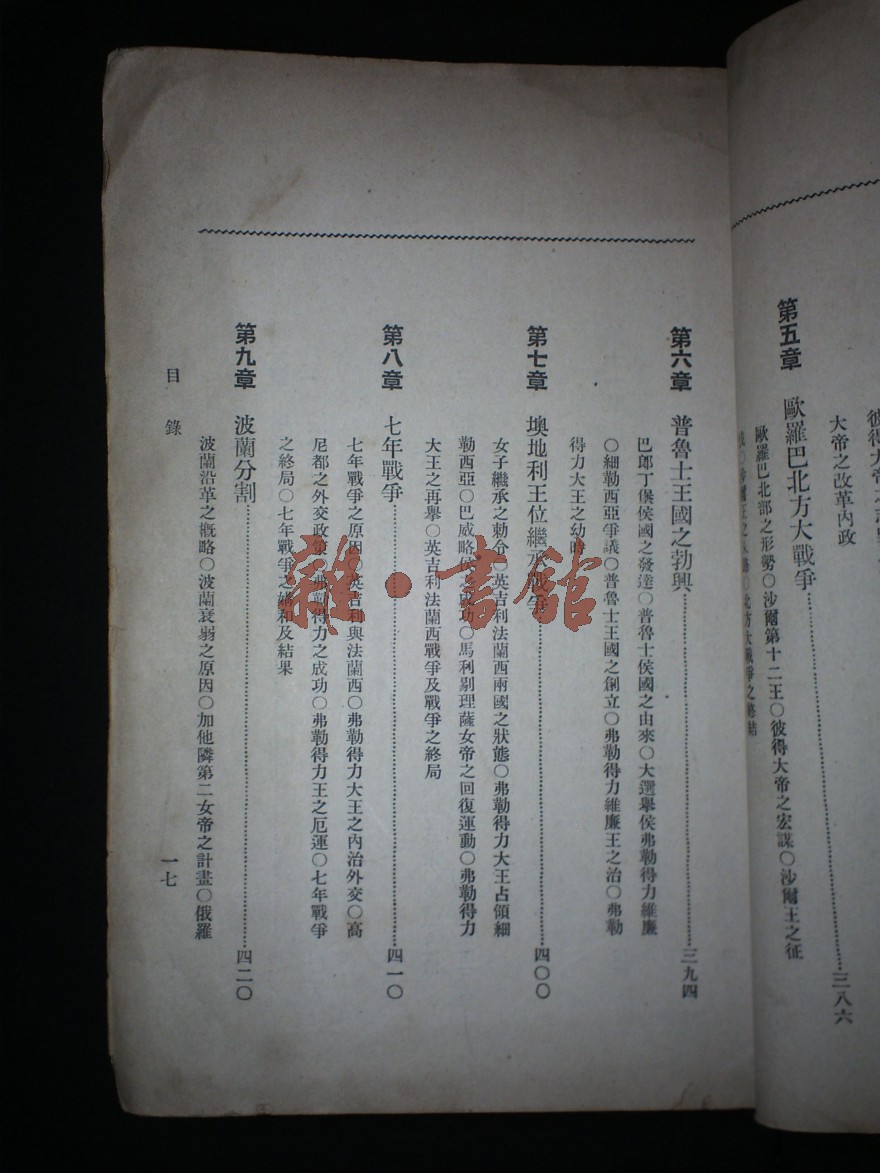 大帝之改革內政
第五章 歐羅巴北方大戰爭……三八六
歐羅巴北部之形勢〇沙爾第十二王〇彼得大帝之宏謀〇沙爾王之征
北方大戰爭之
第六章 普魯士王國之勃興……三九四
巴郎丁堡侯國之發達〇普魯士侯國之由來〇大選舉侯弗勒得力維廉
〇細勒西亞爭議〇普魯士王國之創立〇弗勒得力維廉王之治〇弗勒
得力大王之幼時
第七章 墺地利王位繼承戰爭……四〇〇
女子繼承之勅令〇英吉利法蘭西兩國之狀態〇弗勒得力大王占領細
勒西亞〇巴威略侯之成功〇馬利剔理薩女帝之回復運動〇弗勒得力
大王之再舉〇英吉利法蘭西戰爭及戰爭之終局
第八章 七年戰爭……四一〇
七年戰爭之原因〇英吉利與法蘭西〇弗勒得力大王之內治外交〇高
尼都之外交政策〇弗勒得力之成功〇弗勒得力王之厄運〇七年戰爭
之終局〇七年戰爭之媾和及結果
第九章 波蘭分割……四二〇
波蘭沿革之概略〇波蘭衰弱之原因〇加他隣第二女帝之計畫〇俄羅
目錄 一七
雜·書館